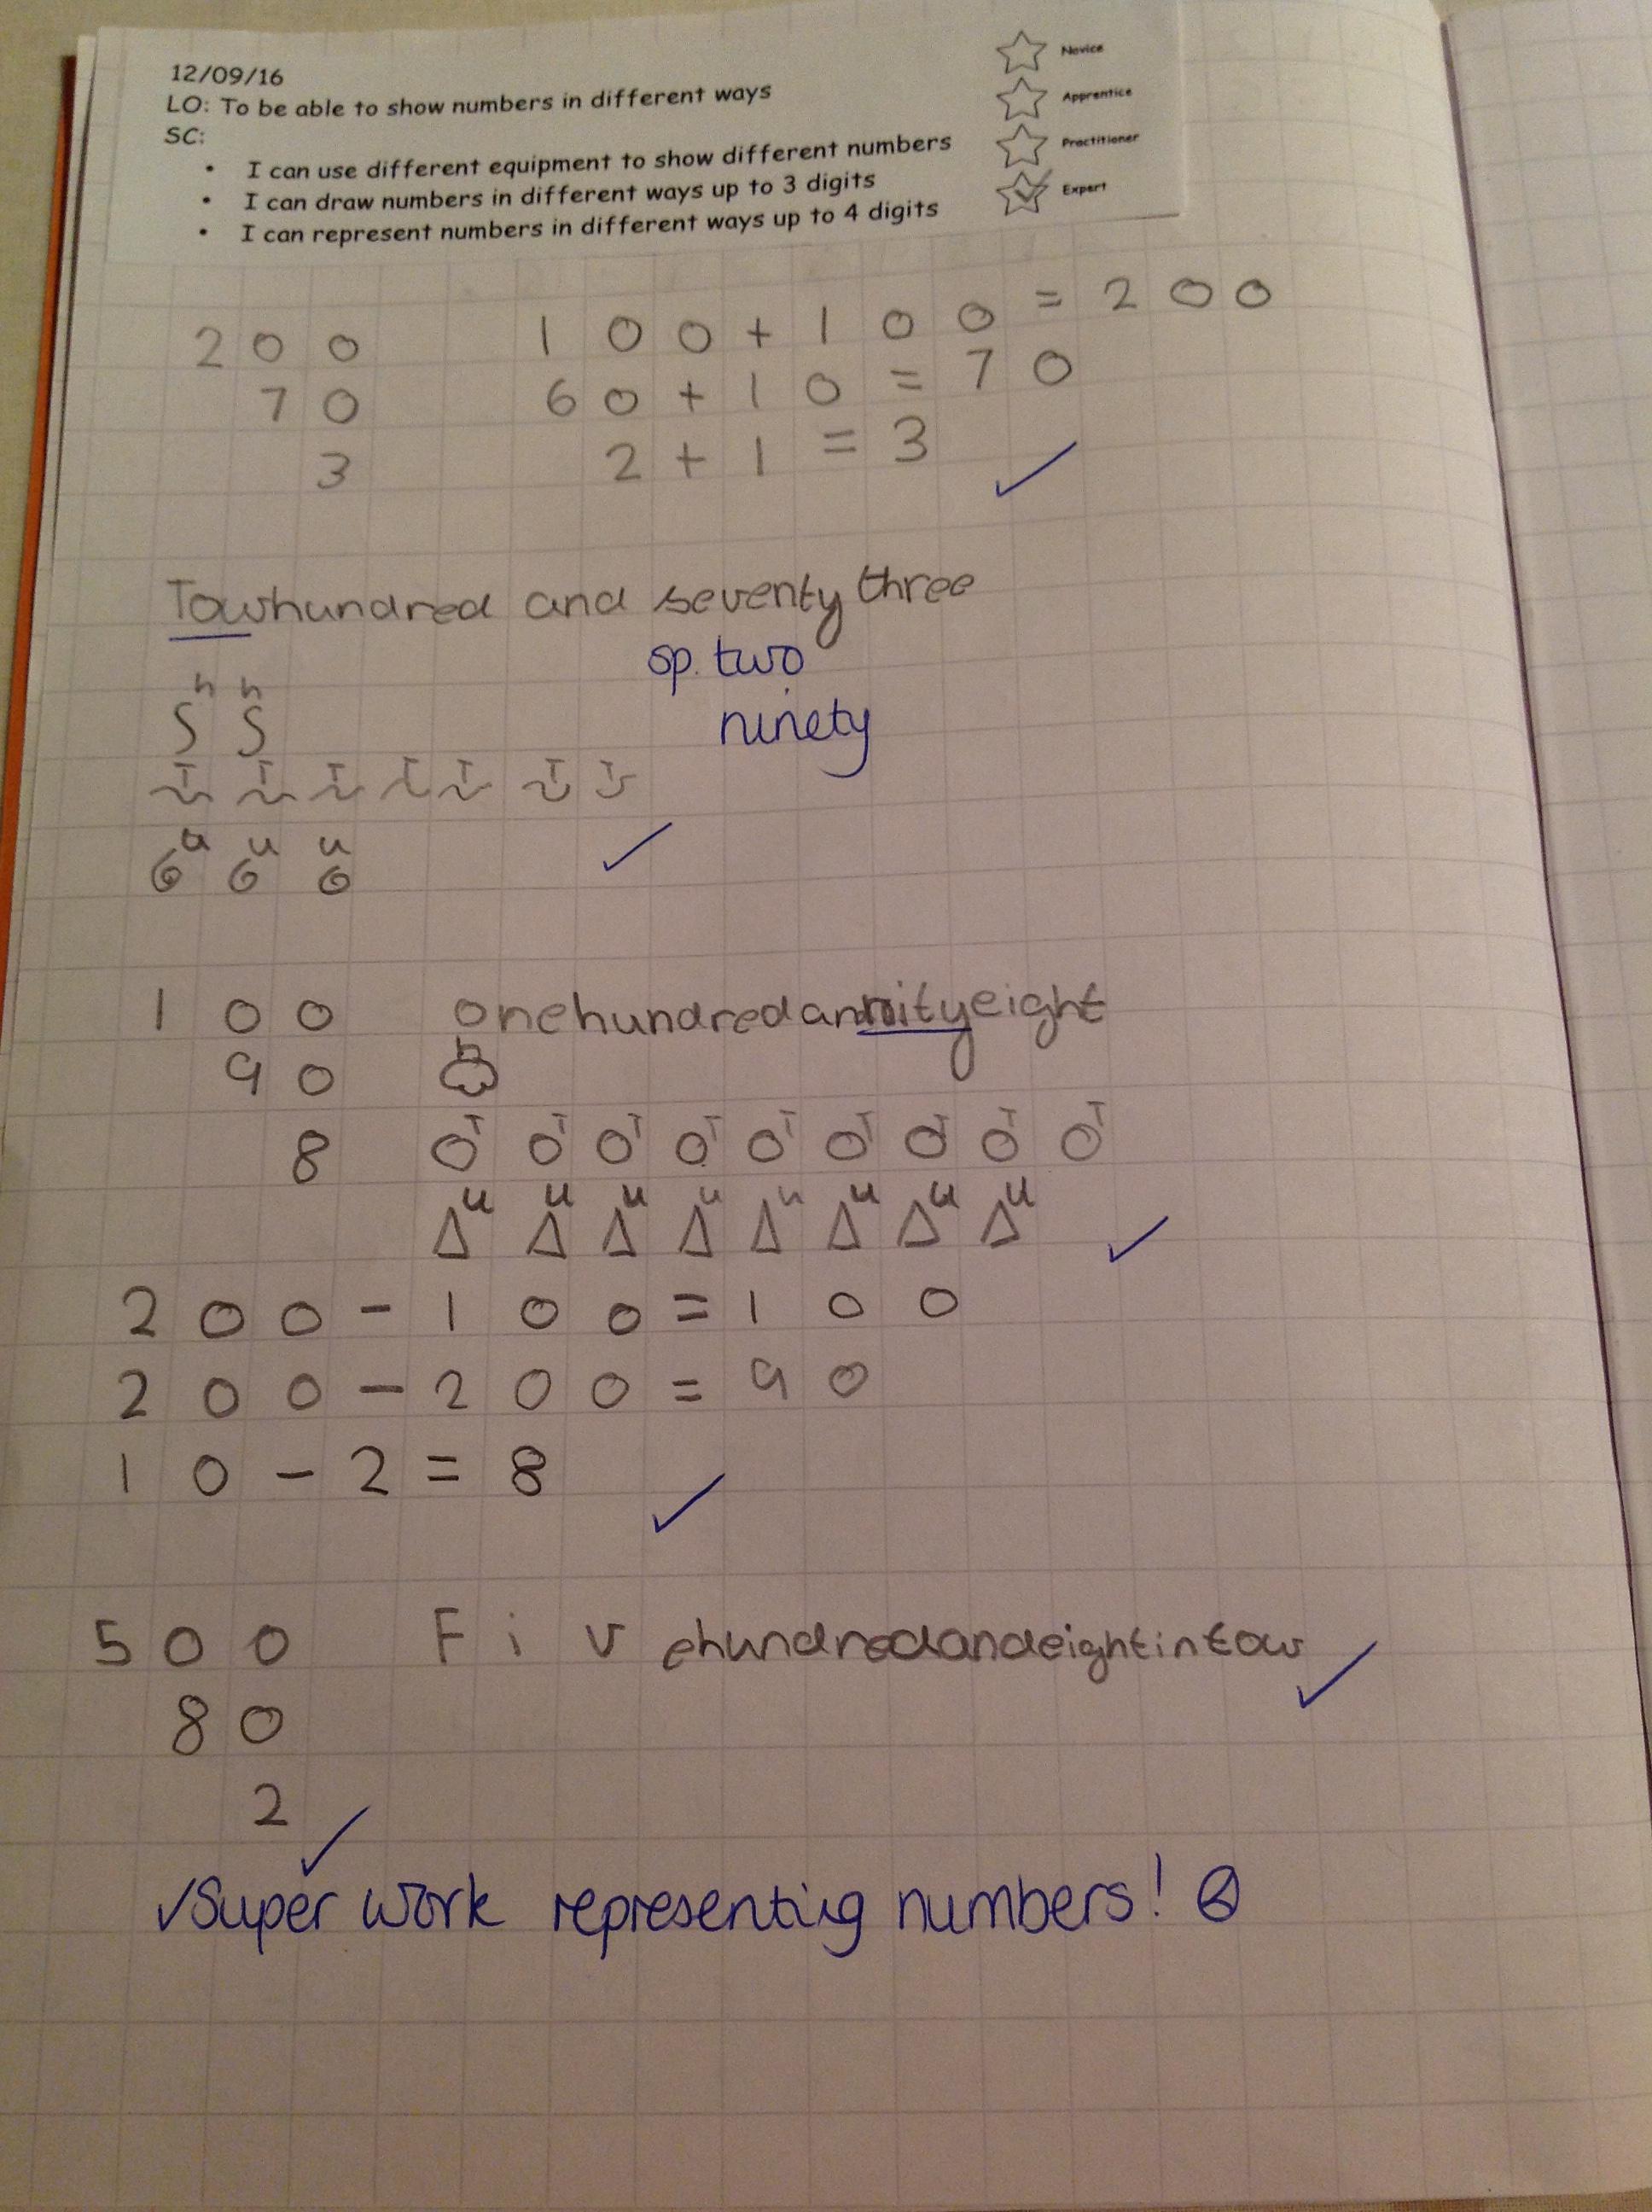 12/09/16
LO: To be able to show numbers in different ways
SC:
• I can use different equipment to show different numbers
• I can draw numbers in different ways up to 3 digits
• I can represent numbers in different ways up to 4 digits
Novice
Apprentice
Practitioner
Expert
200 100+100=200
70 60+10=70
3 2+1=3
Towhundred and seventy three
sp. two
ninety
h h
S S
T T T T T T T
u u u
6 6 6
100 onehundredannityeight
90 h
8 T T T T T T T T T
u u u u u u u u
200-100=100
200-200=90
10-2=8
500 Fivehundredandeightintow
80
2
Super work representing numbers!